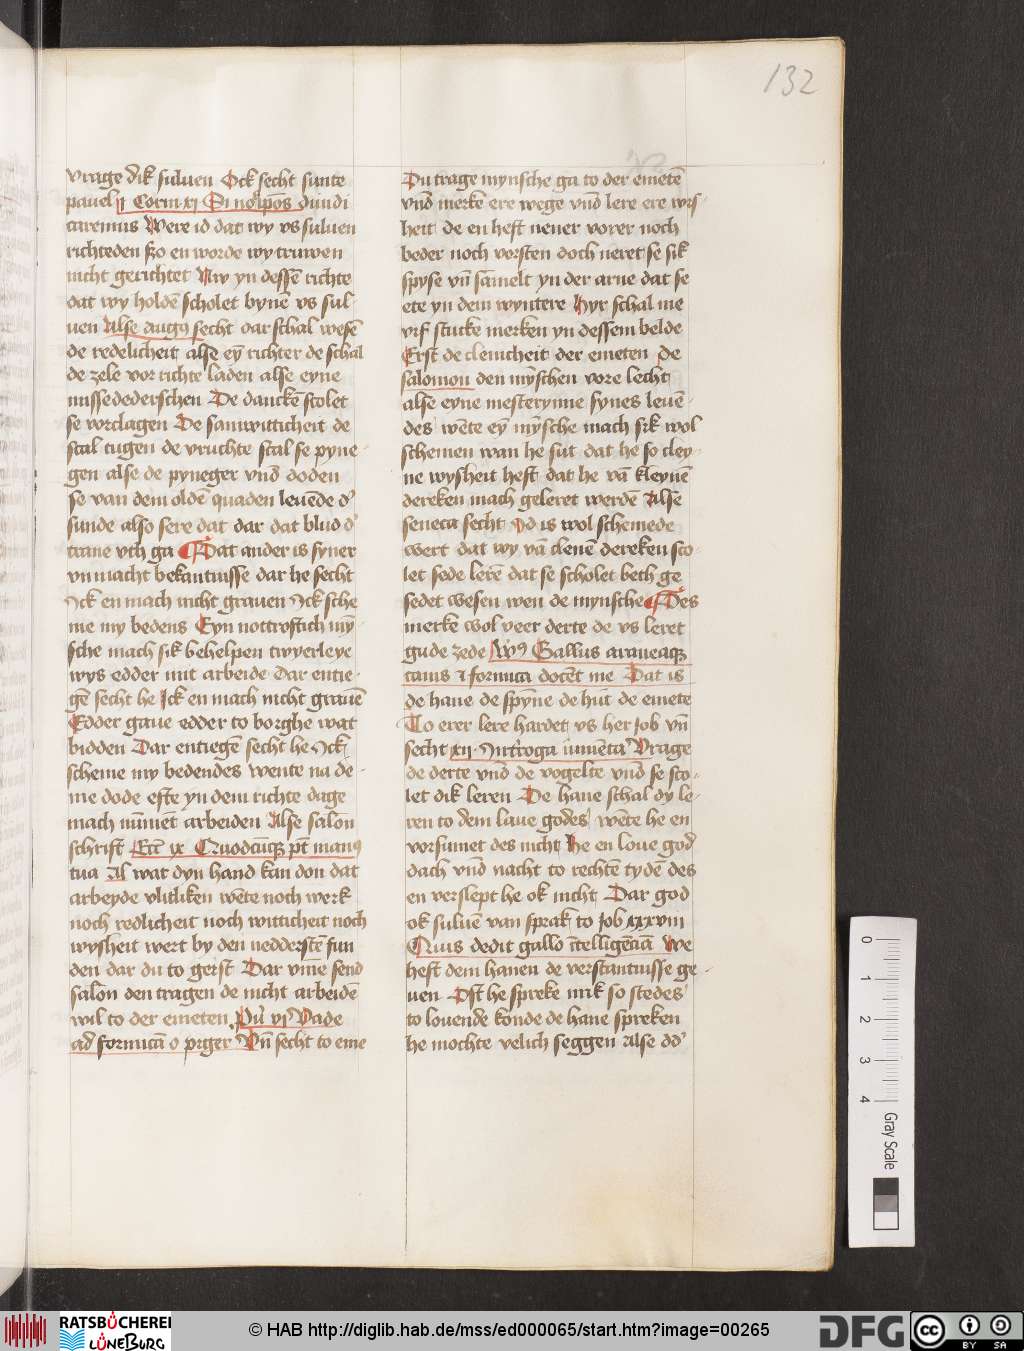 132
vrage dik suluen Ock secht sunte
pauel ij Corin xi Si nos ipos diiudi
caremus Were id dat wy vs suluen
richteden szo en worde wy truwen
nicht gerichtet Nv yn dessē richte
dat wy holdē scholet bynē vs sul
uen Alse augꝰ secht dar schal wesē
de redelicheit alse eyn richter de schal
de zele vor richte laden alse eyne
missedederschen De danckē scolet
se vorclagen De samwitticheit de
scal tugen de vruchte scal se pyne
gen alse de pyneger vnd doden
se van dem oldē quaden leuēde d'
sunde also sere dat dar dat blud d'
trane vth ga Dat ander is syner
vnmacht bekantnisse dar he secht
Ick en mach nicht grauen Ick sche
me my bedens Eyn nottroftich my̅
sche mach sik behelpen twyerleye
wys edder mit arbeide Dar entie
gē secht he Ick en mach nicht grauē
Edder gaue edder to borghe wat
bidden Dar entiegē secht he Ick
scheme my bedendes wente na de
me dode efte yn dem richte dage
mach nūmēt arbeiden Alse salōn
schrift Ecc̄ ix Quodcūqꝫ pt̄ manꝰ
tua Al wat dyn hand kan don dat
arbeyde vlitliken wēte noch werk
noch redlicheit noch witticheit noch
wysheit wert by den nedderstē fun
den dar du to geist Dar vm̄e send
salōn den tragen de nicht arbeidē
wil to der emeten Pū vi Vade
ad formicā o piger Vn̄ secht to eme
Du trage mynsche ga to der emetē
vnd merke ere wege vnd lere ere wis
heit de en heft nener vorer noch
beder noch vorsten doch neret se sik
spyse vn̄ sāmelt yn der arne dat se
ete yn dem wyntere Hyr schal me
vif stucke merken yn dessem belde
Erst de clenicheit der emeten De
salomon den my̅schen vore lecht
alse eyne mesterynne synes leuē
des wēte ey̅ my̅sche mach sik wol
schemen wan he sut dat he so cley
ne wysheit heft dat he vā kleynē
dereken mach geleret werdē Alse
seneca secht Id is wol schemede
wert dat wy vā clenē dereken sco
let sede lerē dat se scholet beth ge
sedet wesen wen de mynsche Des
merke wol veer derte de vs leret
gude zede Gallus araneaqꝫ
canis ⁊ formica docēt me Dat is
de hane de spyne de hūt de emete
To erer lere hardet vs her Job vn̄
secht xij Int'roga iumēta Vrage
de derte vnd de vogelte vnd se sco
let dik leren De hane schal dy le
ren to dem laue godes wēte he en
vorsumet des nicht He en loue god
dach vnd nacht to rechtē tydē des
en verslept he ok nicht Dar god
ok suluē van sprak to Job xxxviii
Quis dedit gallo ītelligēciā We
heft dem hanen de verstantnisse ge
uen Oft he spreke mik so stedes
to louende konde de hane spreken
he mochte velich seggen Alse dd'
0
1
2
3
4
Gray Scale
RATSBÜCHEREI
LÜNEBURG
© HAB http://diglib.hab.de/mss/ed000065/start.htm?image=00265
DFG
cc
BY SA